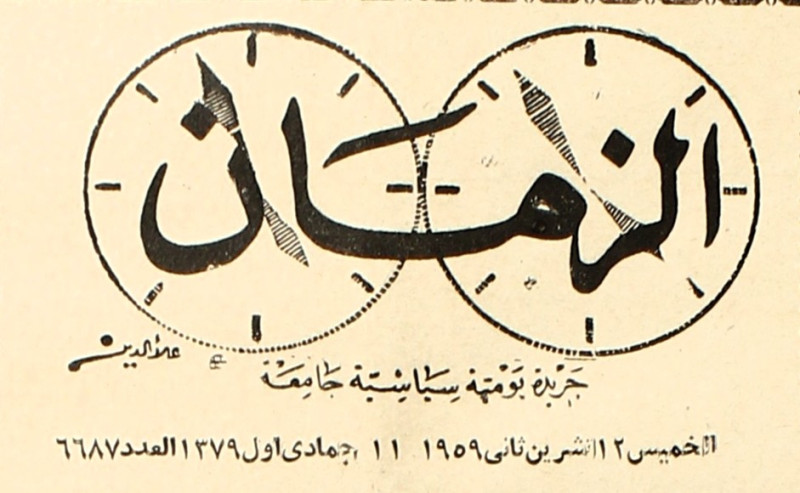 الزمان
علاء الدين
جريدة يومية سياسية جامعة
الخميس ١٢ تشرين ثاني ١٩٥٩ ١١ جمادى اول ١٣٧٩ العدد ٦٦٨٧